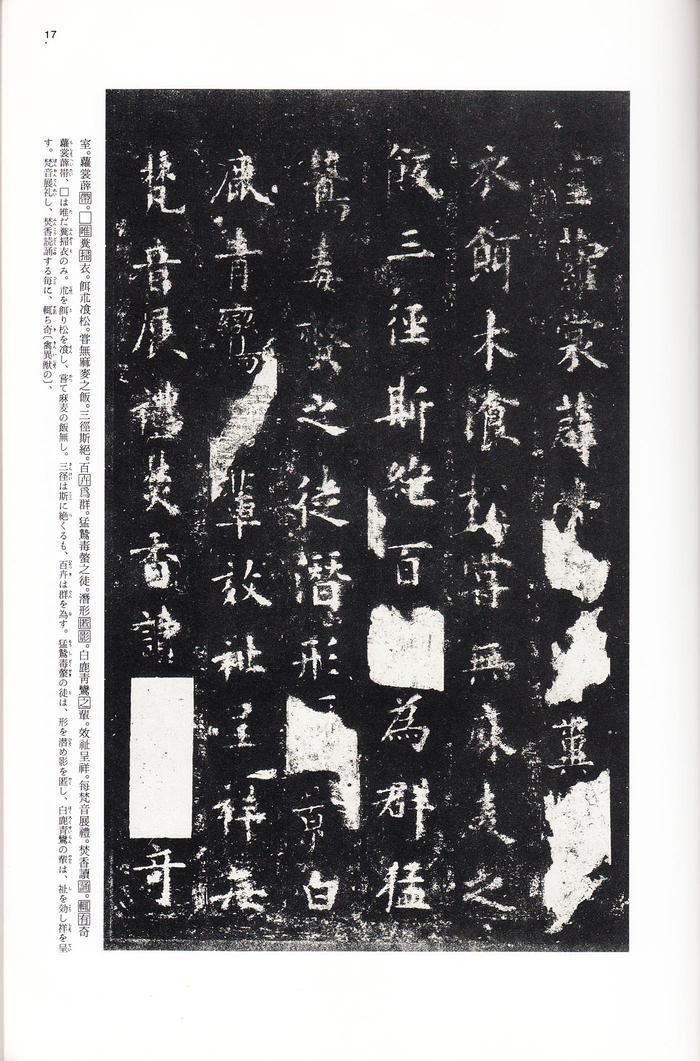 17
室蘿裳薜帶糞
衣餌朮飡松嘗無麻麦之
飯三徑斯絶百為群猛
鷙毒螫之徒潛形影白
鹿青鸞輩效祉呈祥每
梵音展禮焚香讀奇
室。蘿裳薜帶。□唯糞掃衣。餌朮飡松。嘗無麻麥之飯。三徑斯絕。百卉爲群。猛鷙毒螫之徒。潛形匿影。白鹿靑鸞之輩。效祉呈祥。每梵音展禮。焚香讀誦。輒有奇
蘿裳薜帯、□は唯だ糞掃衣のみ。朮を餌り松を飡し、嘗て麻麦の飯無し。三径は斯に絶くるも、百卉は群を為す。猛鷙毒螫の徒は、形を潜め影を匿し、白鹿青鸞の輩は、祉を効し祥を呈
す。梵音展礼し、焚香読誦する毎に、輒ち奇〔禽異獣の〕、